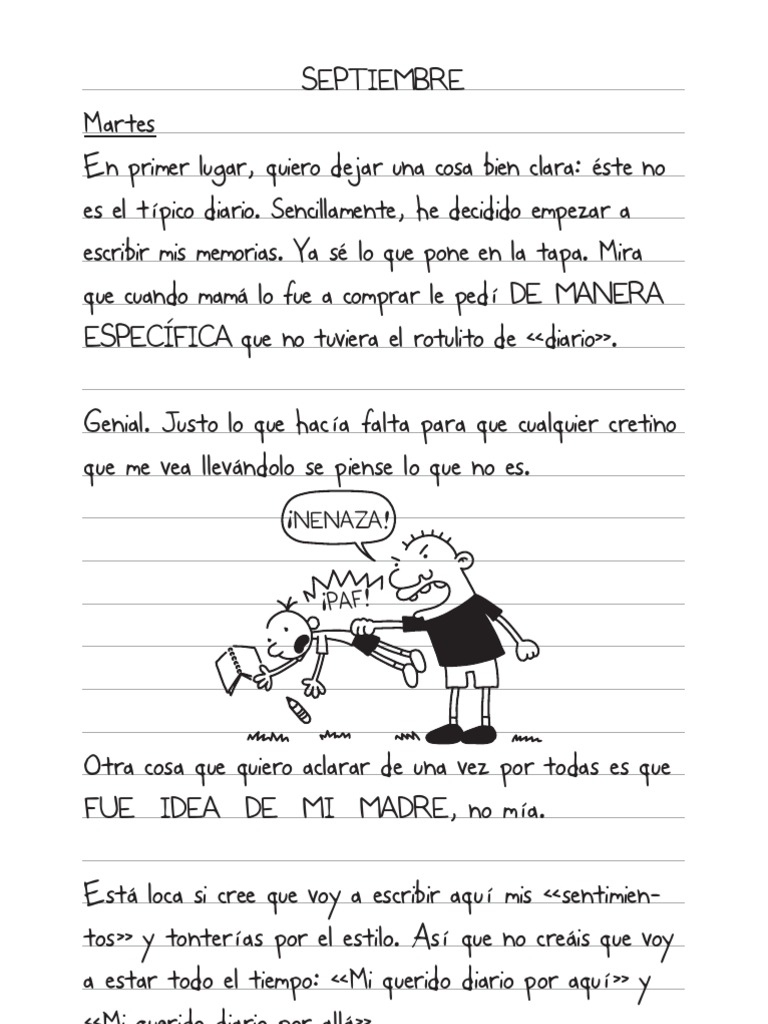 SEPTIEMBRE
Martes
En primer lugar, quiero dejar una cosa bien clara: éste no
es el típico diario. Sencillamente, he decidido empezar a
escribir mis memorias. Ya sé lo que pone en la tapa. Mira
que cuando mamá lo fue a comprar le pedí DE MANERA
ESPECÍFICA que no tuviera el rotulito de «diario».
Genial. Justo lo que hacía falta para que cualquier cretino
que me vea llevándolo se piense lo que no es.
¡NENAZA!
¡PAF!
Otra cosa que quiero aclarar de una vez por todas es que
FUE IDEA DE MI MADRE, no mía.
Está loca si cree que voy a escribir aquí mis «sentimien-
tos» y tonterías por el estilo. Así que no creáis que voy
a estar todo el tiempo: «Mi querido diario por aquí» y
«Mi querido diario por allá»